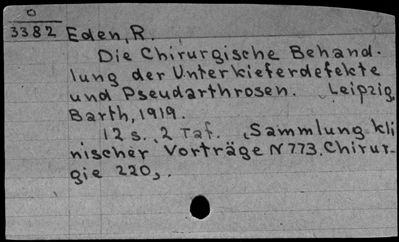 O
3382 Eden, R.
Die Chirurgische Behand-
lung der Unterkieferdefekte
und Pseudarthrosen. Leipzig,
Barth, 1919.
12 s. 2 Taf. „Sammlung kli
nischer Vorträge N 773. Chirur-
gie 220„.